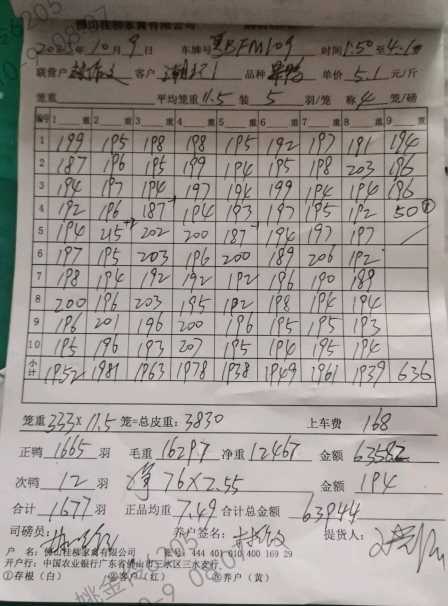 佛山桂柳家禽有限公司
2025年10月9日 车牌号 粤BFM109 时间1:50至4:1
联营户 客户 湖北1 品种 单价 5.1 元/斤
笼重 平均笼重11.5 装 5 羽/笼 称 4 笼/磅
编号 1 重 2 重 3 重 4 重 5 重 6 重 7 重 8 重 9 重
1 199 195 198 198 195 192 197 191 194
2 187 196 195 199 194 195 198 203 196
3 194 197 194 197 196 199 194 194 196
4 192 196 187 194 193 197 195 192 50
5 194 215 202 200 187 194 197 197
6 197 195 203 196 200 189 206 192
7 198 194 192 192 192 196 190 189
8 200 196 203 195 192 198 194 194
9 196 201 196 200 196 195 195 193
10 195 196 193 207 195 194 195 194
小计 1952 1981 1963 1978 1938 1949 1961 1939 636
笼重 333 x 11.5 笼=总皮重: 3830 上车费 168
正鸭 1665 羽 毛重 16297 净重 12467 金额 63582
次鸭 12 羽 净 76 x 2.55 金额 194
合计 1677 羽 正品均重 7.49 合计总金额 63944
司磅员: 养户签名: 提货人:
户 名: 佛山桂柳家禽有限公司 账号: 444 401 010 400 169 29
开户行: 中国农业银行广东省佛山市三水区三水支行
①存根(白) ②客户(红) ③养户(黄)